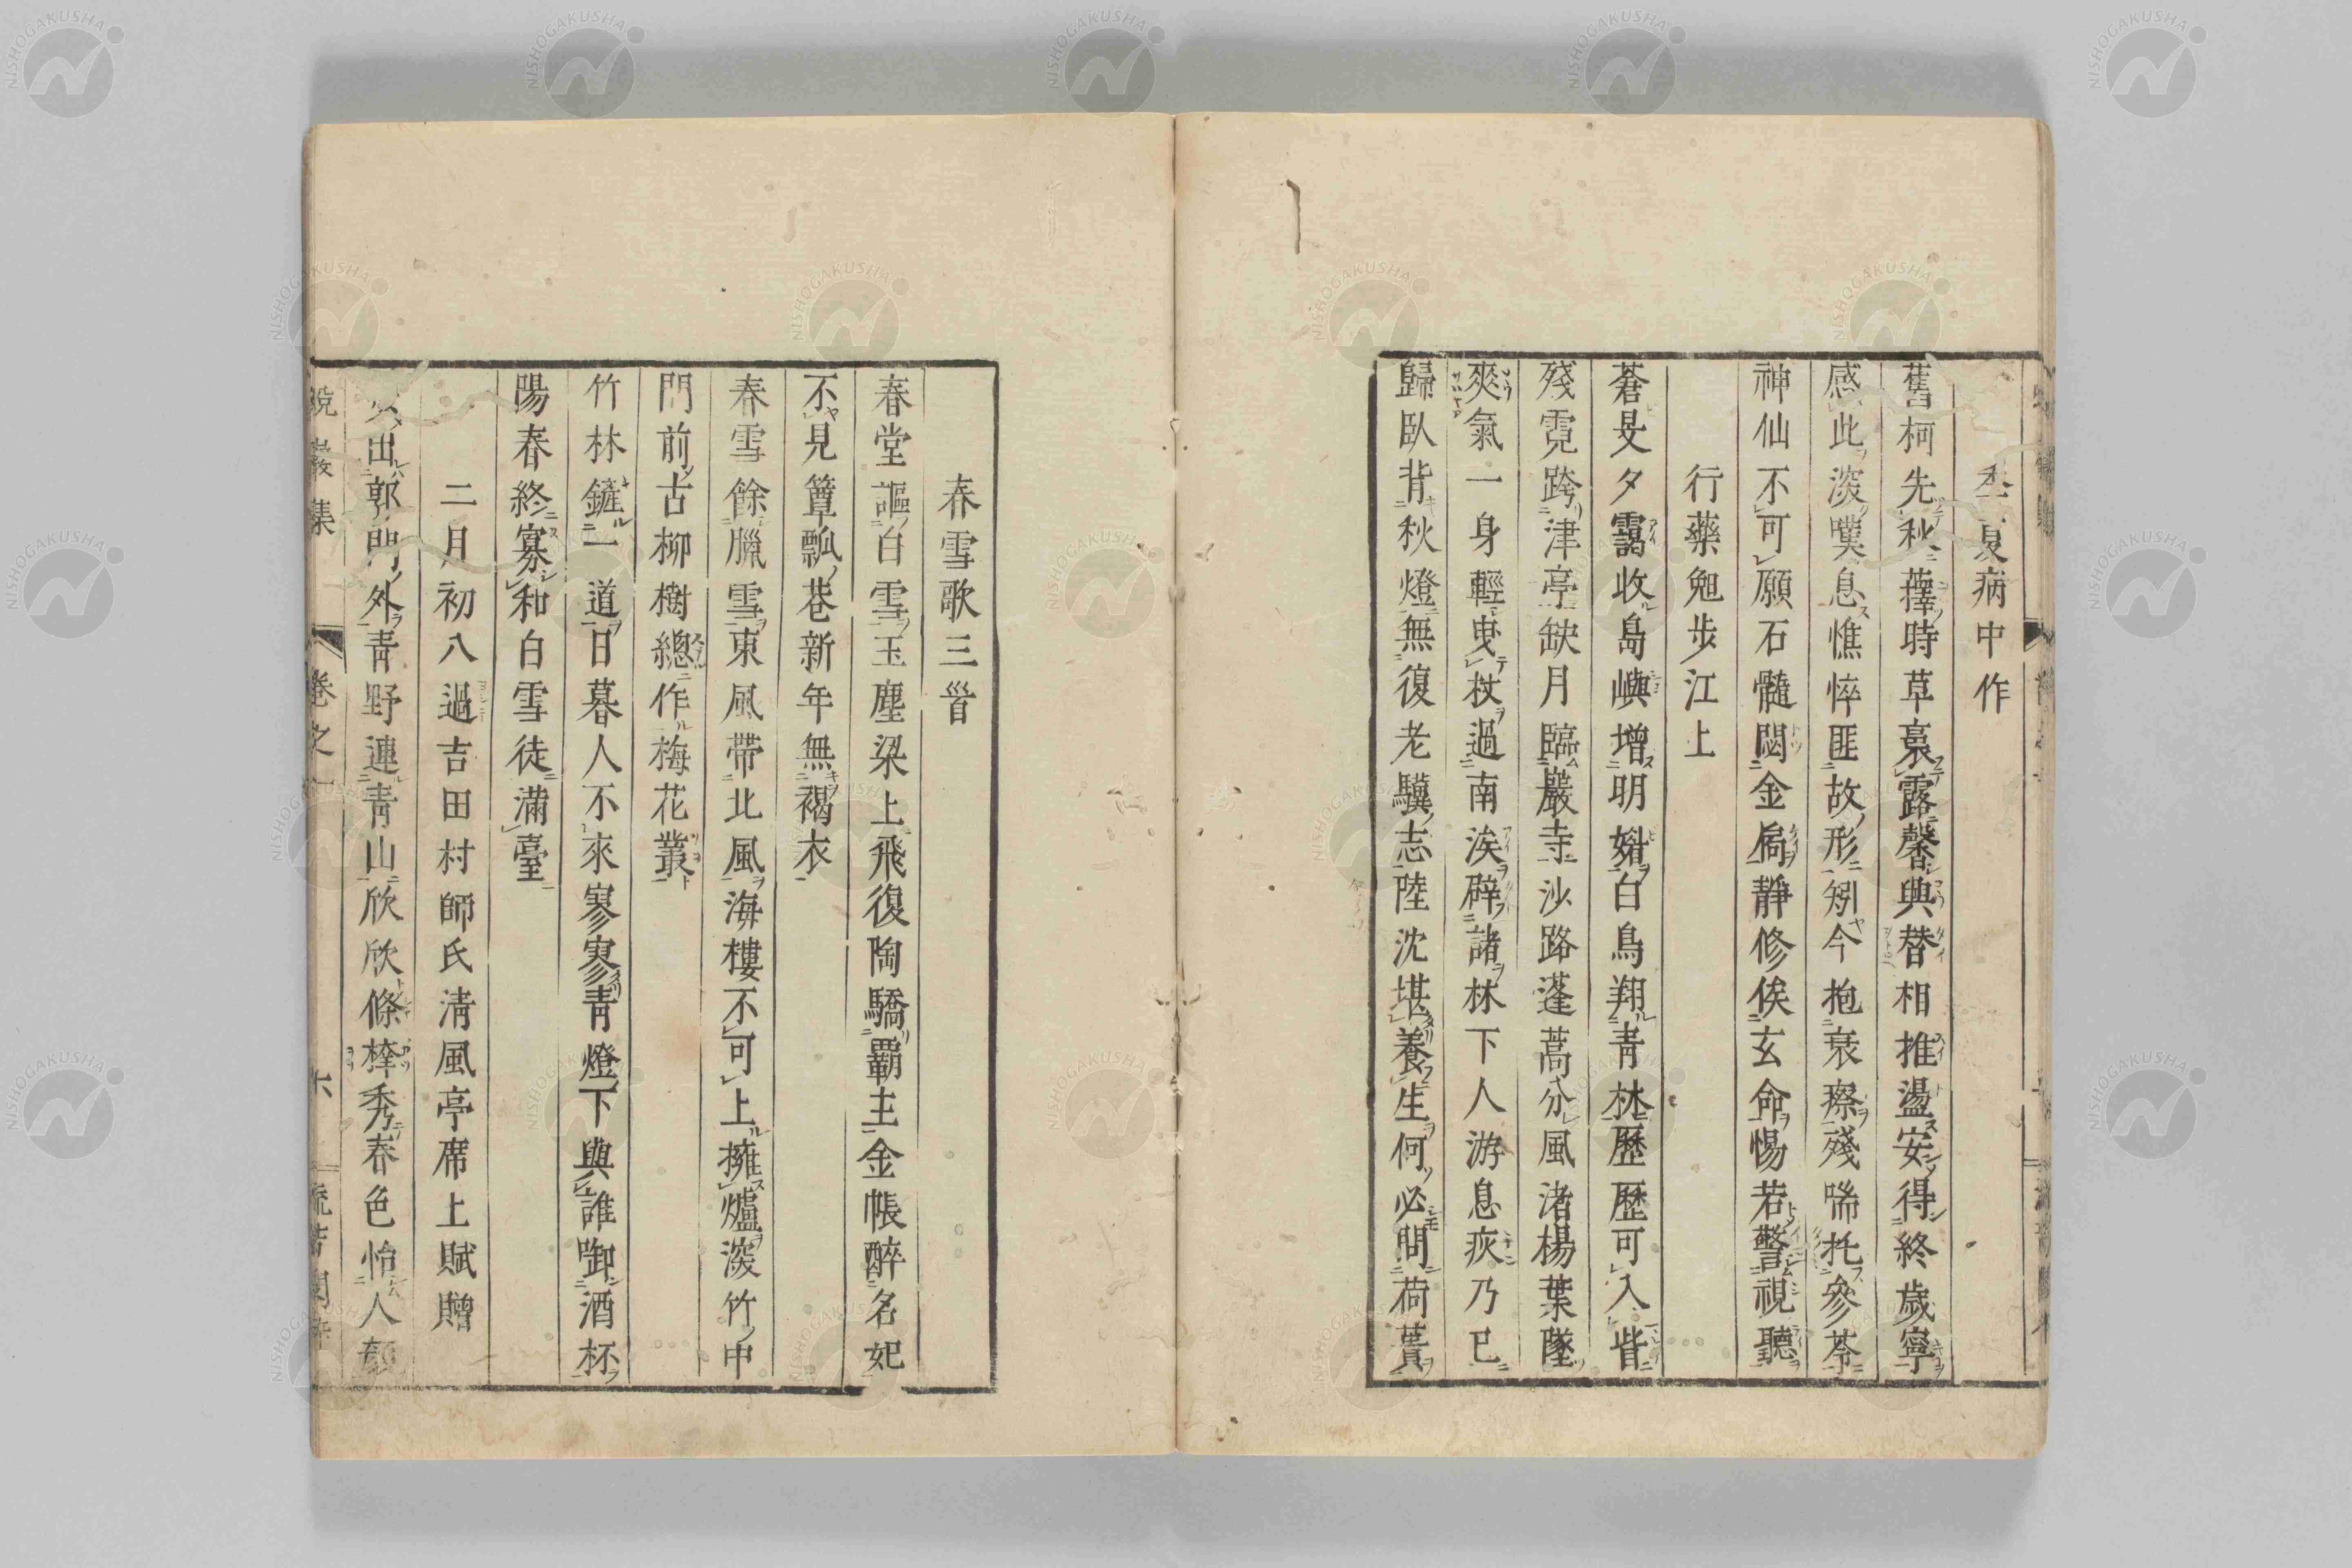 季夏病中作
舊柯先秋蘀時草裛露馨與替相推盪安得終歲寧
感此深嘆息憔悴匪故形矧今抱衰瘵殘喘托參苓
神仙不可願石髓閟金扃靜修俟玄命惕若警視聽
行藥勉步江上
蒼旻夕靄收島嶼增明媚白鳥翔青林歷歷可入眥
殘霓跨津亭缺月臨巖寺沙路蓬蒿分風渚楊葉墜
爽氣一身輕曳杖過南涘辟諸林下人游息疢乃已
歸臥背秋燈無復老驥志陸沈堪養生何必問荷蕢
春雪歌三首
春堂謳白雪玉塵梁上飛復陶驕霸主金帳醉名妃
不見簞瓢巷新年無褐衣
春雪餘臘雪東風帶北風海樓不可上擁爐深竹中
門前古柳樹總作梅花叢
竹林鏟一道日暮人不來寥寥青燈下與誰啣酒杯
陽春終寡和白雪徒滿臺
二月初八過吉田村師氏清風亭席上賦贈
出郭門外青野連青山欣欣條榦秀春色怡人顏
巖集
卷之一
六
NISHOGAKUSHA